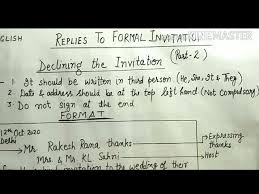 GLISH
REPLIES TO FORMAL INVITATION
Declining the Invitation (Part-2)
- 1 It should be written in third person (He, She, It & They)
- 2 Date & address should be at the top left hand (Not Compulsory)
- 3 Do not sign at the end
FORMAT
12th Oct 2020
Delhi
Mr Rakesh Rama thanks → Expressing thanks
Mrs. & Mr. KL Sahni → Host
kind invitation to the wedding of their